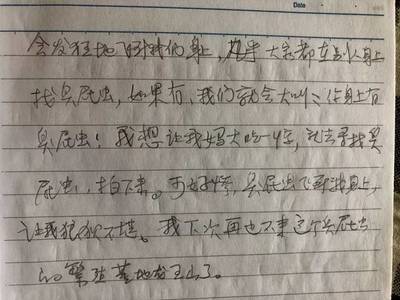 Date
会发狂地飞到我们身上,几乎大家都在别人身上
找臭屁虫,如果有,我们就会大叫:你身上有
臭屁虫!我想让我妈大吃一惊,就去寻找臭
屁虫,拍下来。可好景,臭屁虫飞到我身上,
让我狼狈不堪。我下次再也不来这个臭屁虫
的繁殖基地老王山了。